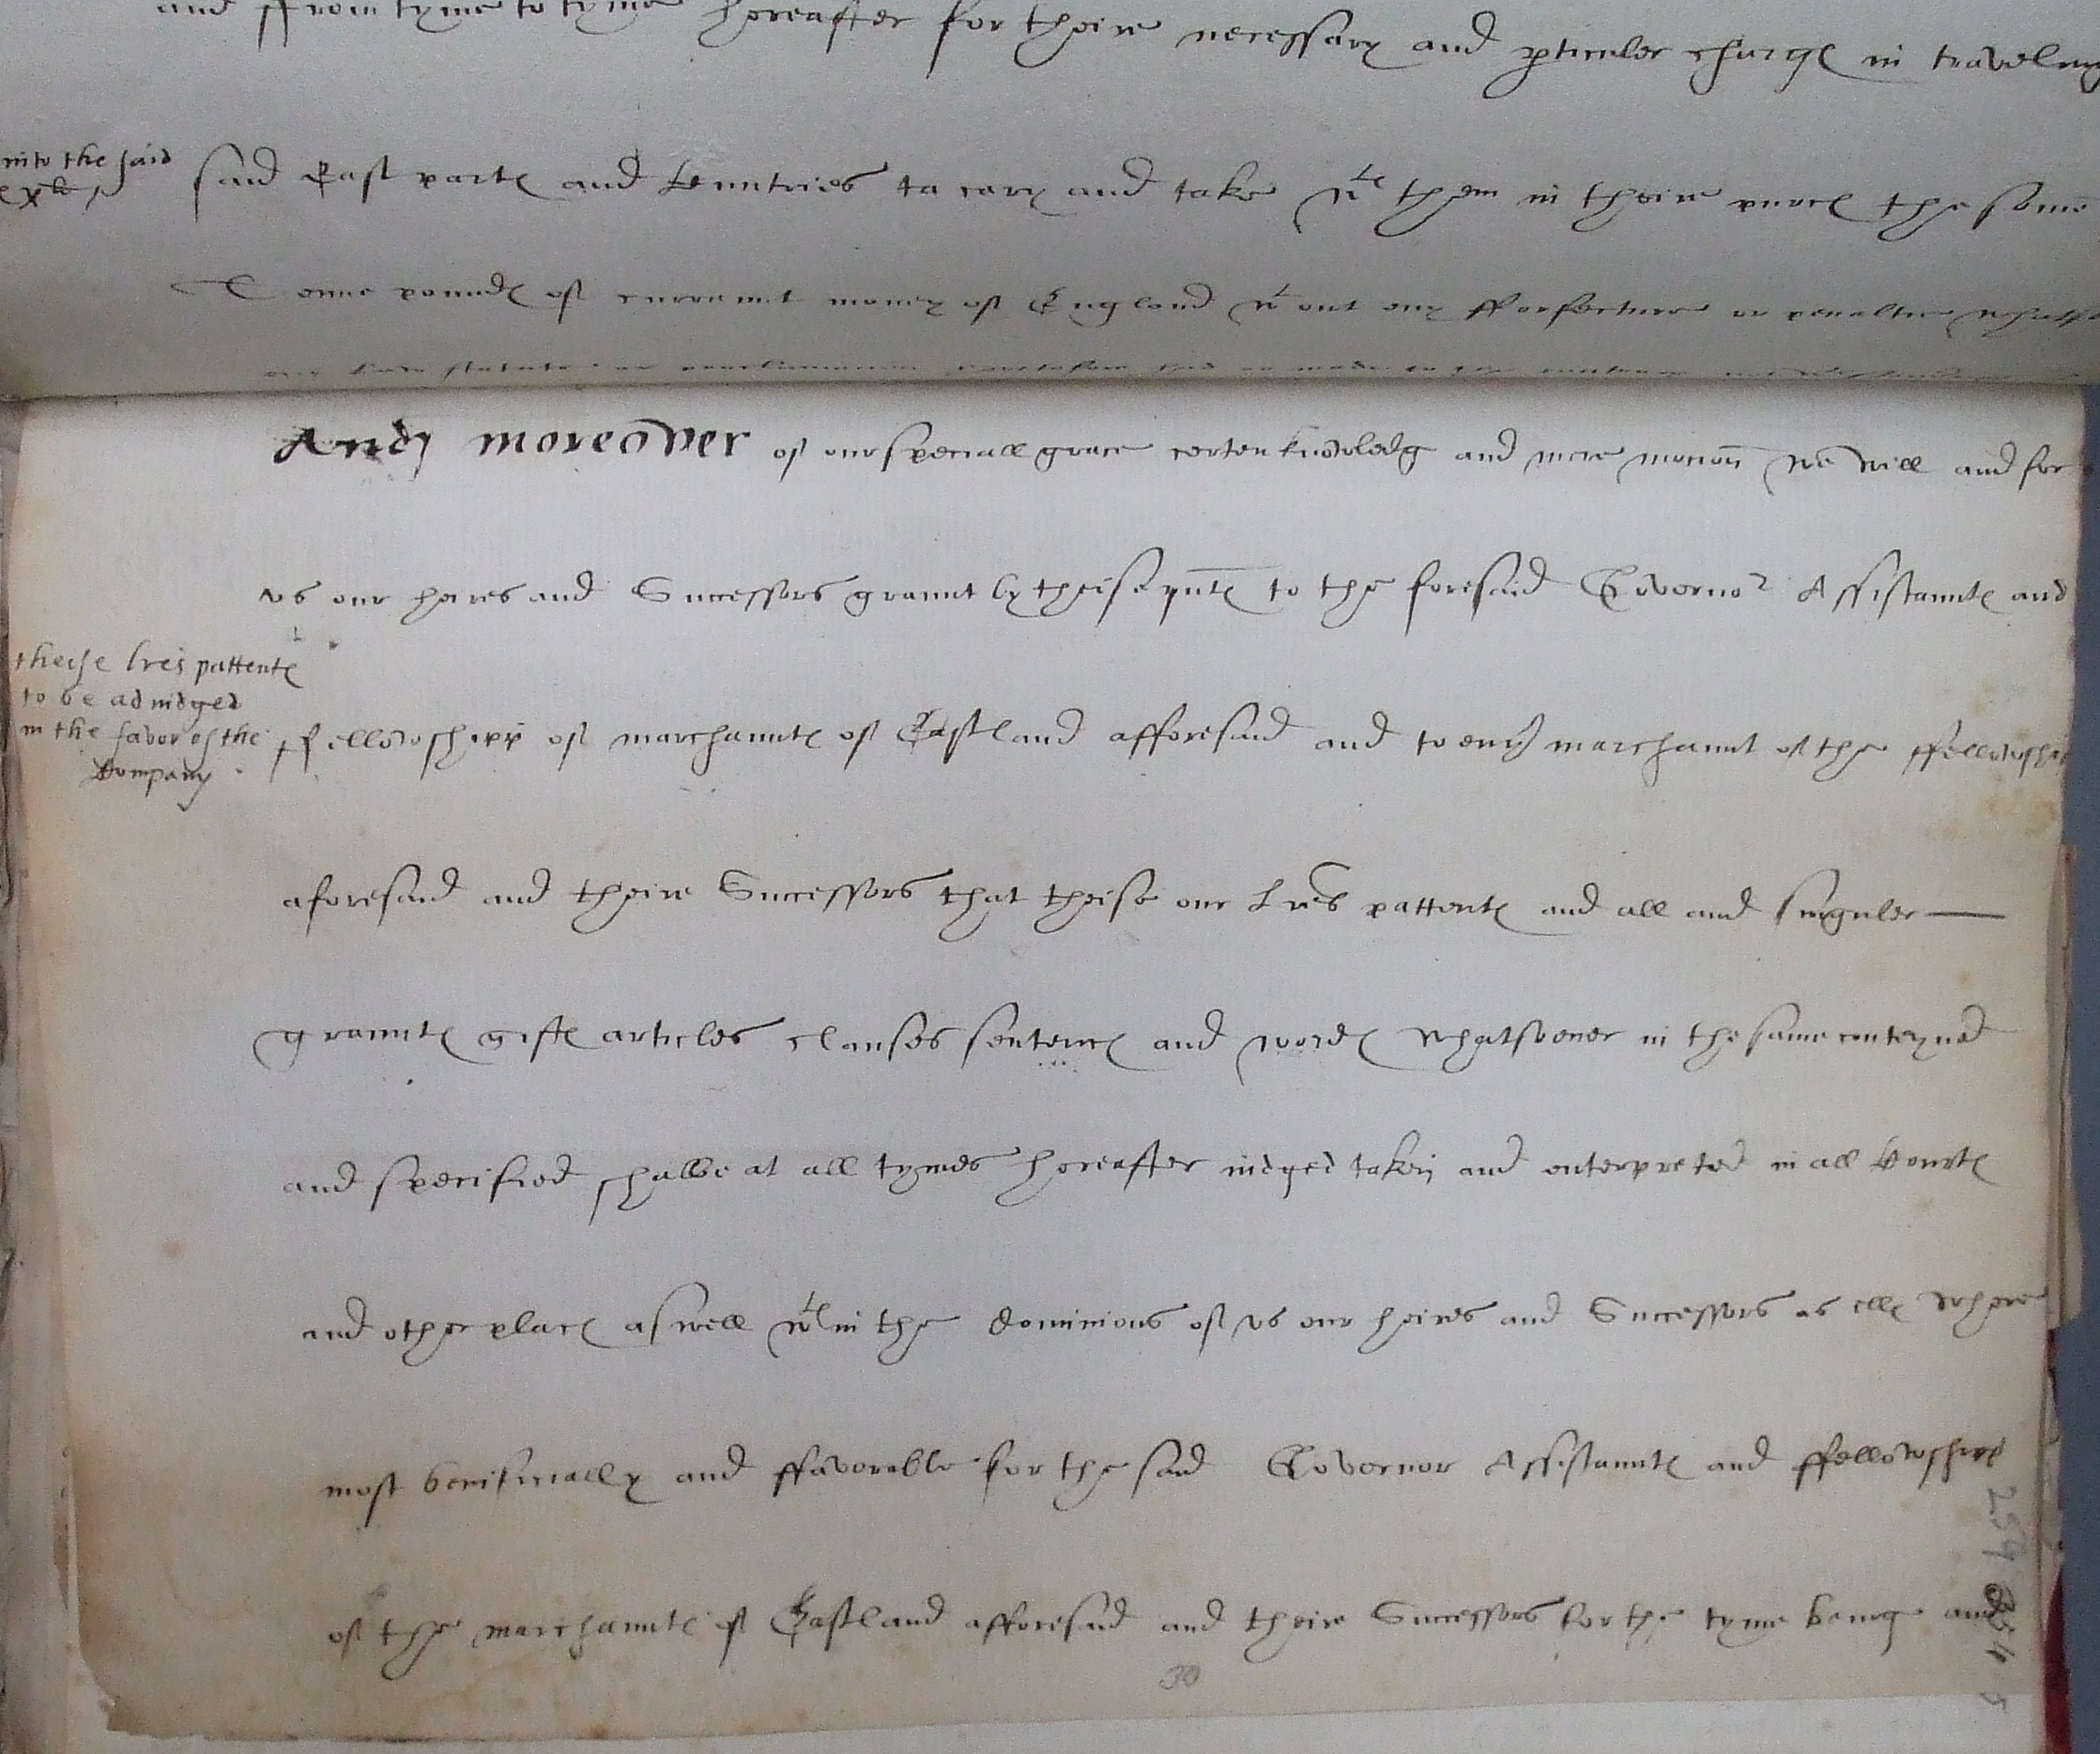 and ffrom tyme to tyme hereafter for theire necessary and pticuler charges in traveling
into the said
said East partes and Countries to cary and take wth them in theire purces the some
Tenne poundes of currannt money of England wtout any fforfecture or penaltie whatso
And moreover of our speciall grace certen knowledg and mere mocion we will and for
vs our heires and Successors graunt by theise pntes to the foresaid Governor Assistauntes and
theise lres pattentes
to be adiudged
in the favor of the
Company
ffellowshipp of marchauntes of Eastland afforesaid and to euy marchaunt of the ffellowship
aforesaid and theire Successors that theise our Lres pattentes and all and singuler
grauntes giftes articles clauses sentences and wordes whatsoeuer in the same conteyned
and specified shalbe at all tymes hereafter iudged taken and enterpreted in all Courtes
and other places aswell wthin the dominions of vs our heires and Successors as elles where
most benificially and ffavorable for the said Governor Assistauntes and ffellowshipp
of the marchauntes of Eastland afforesaid and theire Successors for the tyme being and
30
259